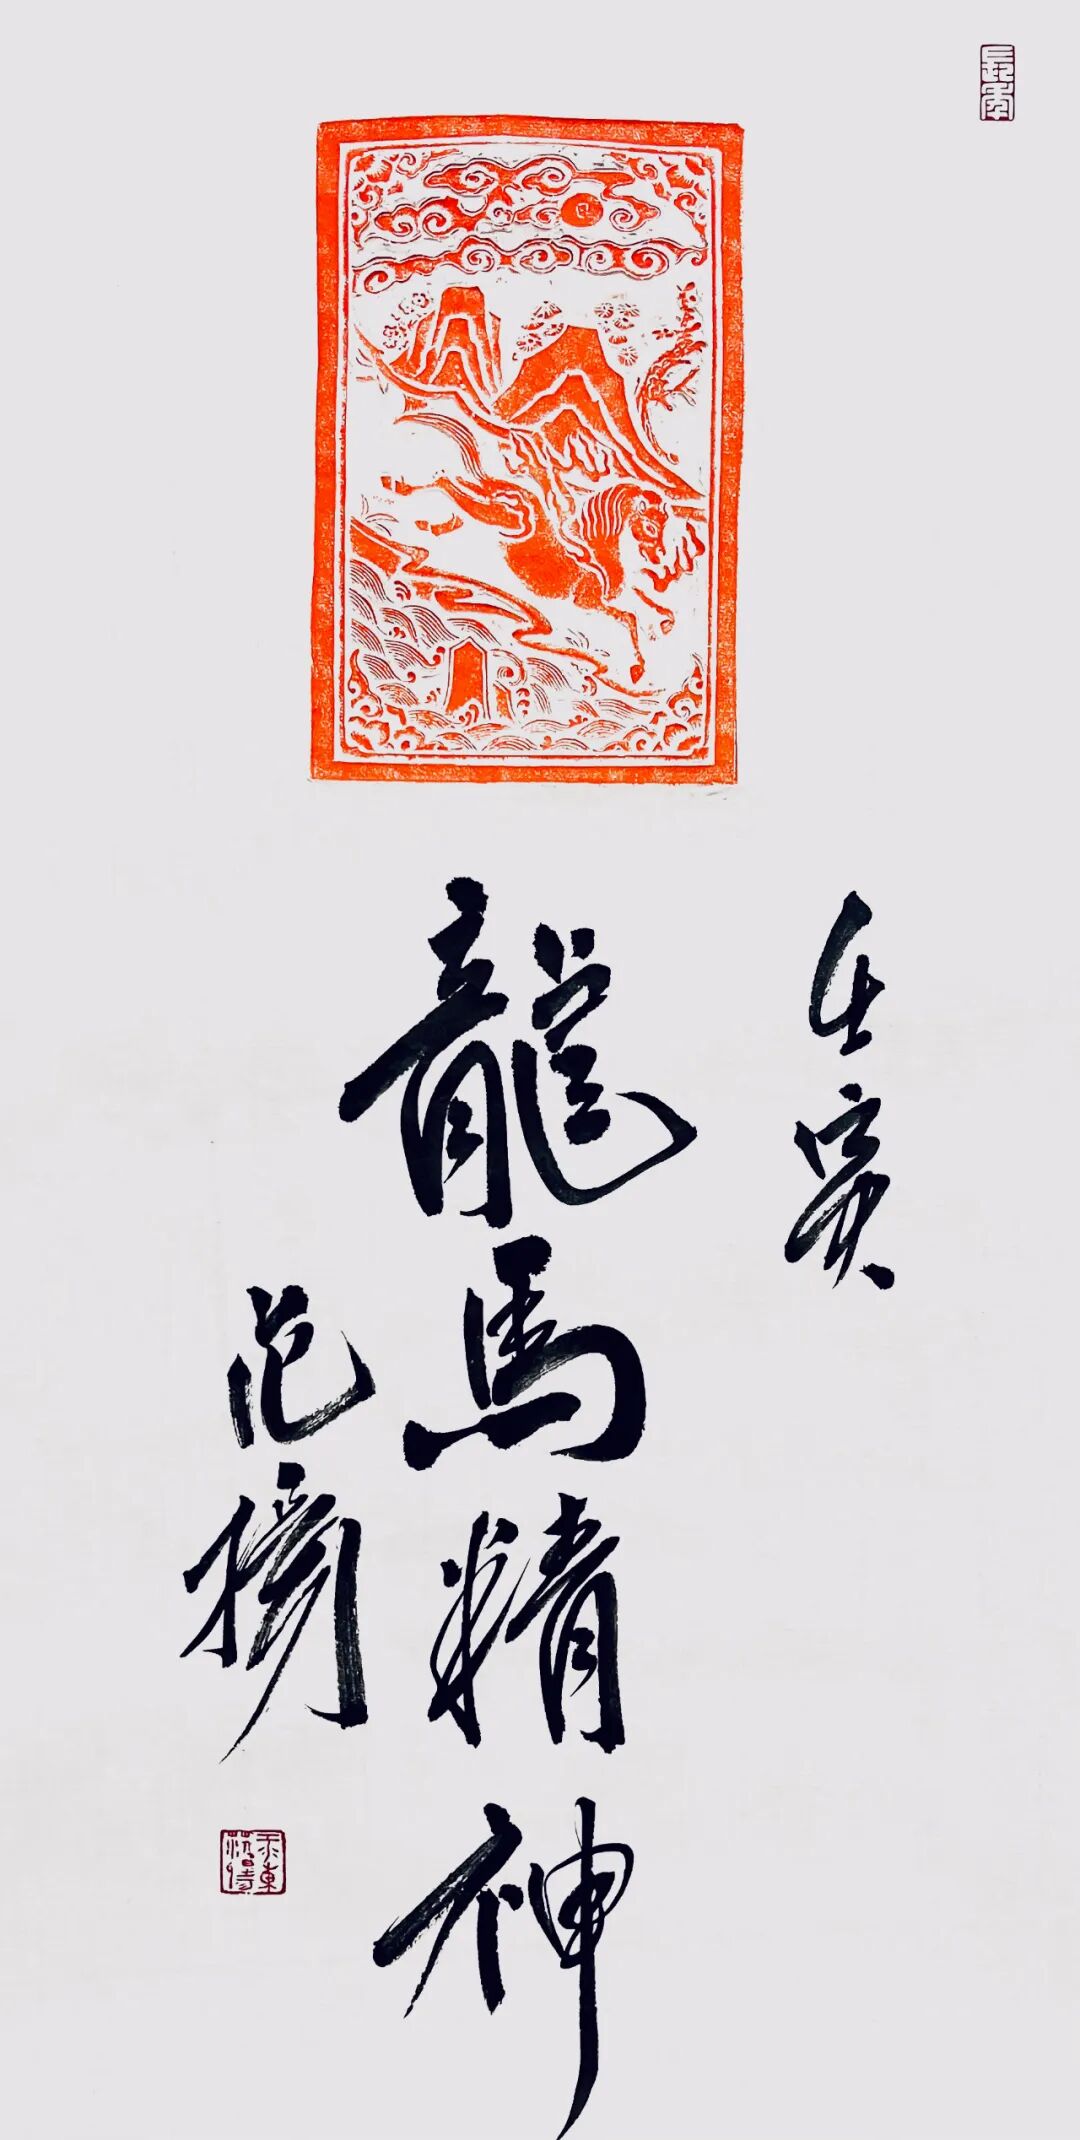 壬寅
龍馬精神
范揚